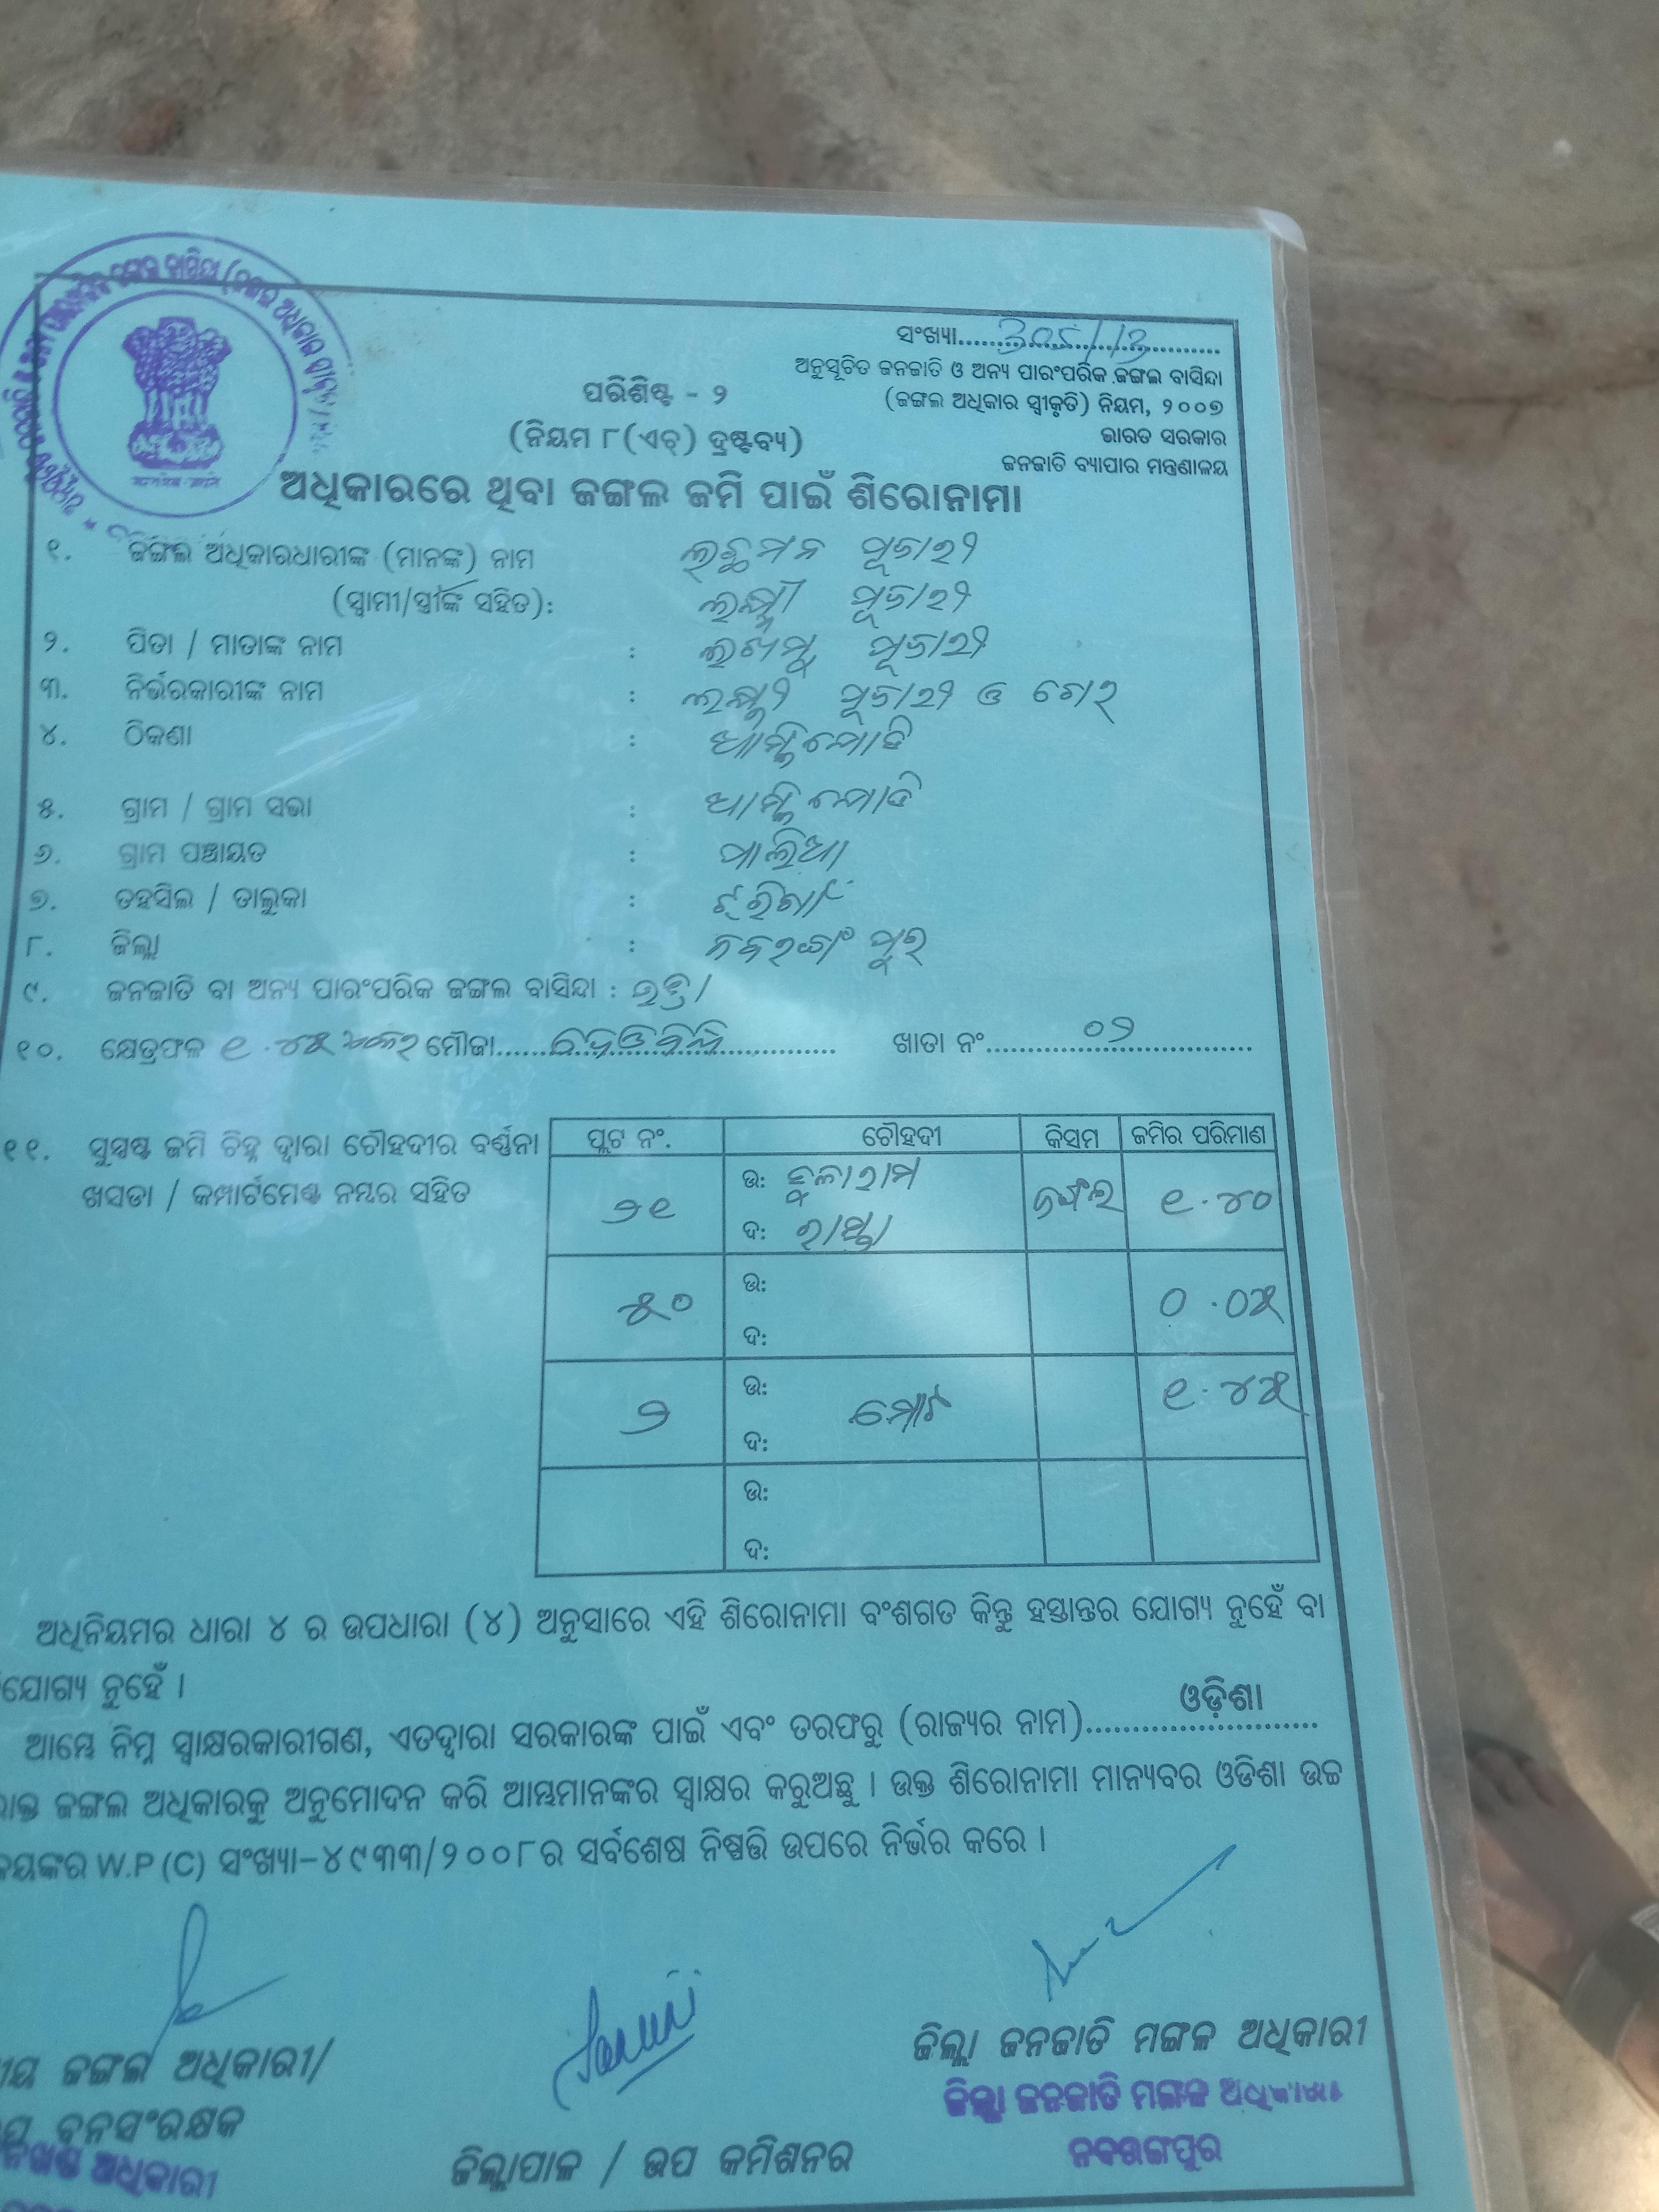 ସଂଖ୍ୟା....................
ଅନୁସୂଚିତ ଜନଜାତି ଓ ଅନ୍ୟ ପାରଂପରିକ ଜଙ୍ଗଲ ବାସିନ୍ଦା
(ଜଙ୍ଗଲ ଅଧିକାର ସ୍ୱୀକୃତି) ନିୟମ, ୨୦୦୭
ଭାରତ ସରକାର
ଜନଜାତି ବ୍ୟାପାର ମନ୍ତ୍ରଣାଳୟ
ପରିଶିଷ୍ଟ - ୨
(ନିୟମ ୮(ଏଚ୍) ଦ୍ରଷ୍ଟବ୍ୟ)
ଅଧିକାରରେ ଥିବା ଜଙ୍ଗଲ ଜମି ପାଇଁ ଶିରୋନାମା
୧. ଜଙ୍ଗଲ ଅଧିକାରଧାରୀଙ୍କ (ମାନଙ୍କ) ନାମ ଲଛୁମନ ପୂଜାରୀ
(ସ୍ୱାମୀ/ସ୍ତ୍ରୀଙ୍କ ସହିତ): ଲକ୍ଷ୍ମୀ ପୂଜାରୀ
୨. ପିତା / ମାତାଙ୍କ ନାମ : ପୂଜାରୀ
୩. ନିର୍ଭରକାରୀଙ୍କ ନାମ : ଲକ୍ଷ୍ମୀ ପୂଜାରୀ ଓ
୪. ଠିକଣା :
୫. ଗ୍ରାମ / ଗ୍ରାମ ସଭା :
୬. ଗ୍ରାମ ପଞ୍ଚାୟତ :
୭. ତହସିଲ / ତାଲୁକା :
୮. ଜିଲ୍ଲା : ନବରଙ୍ଗପୁର
୯. ଜନଜାତି ବା ଅନ୍ୟ ପାରଂପରିକ ଜଙ୍ଗଲ ବାସିନ୍ଦା : ଭତ୍ରା
୧୦. କ୍ଷେତ୍ରଫଳ ୧.୪୫ ଏକର ମୌଜା.................... ଖାତା ନଂ....................୦୨
୧୧. ସୁସ୍ପଷ୍ଟ ଜମି ଚିହ୍ନ ଦ୍ୱାରା ଚୌହଦୀର ବର୍ଣ୍ଣନା
ଖସଡା / କମ୍ପାର୍ଟମେଣ୍ଟ ନମ୍ବର ସହିତ
ପ୍ଲଟ ନଂ. ଚୌହଦୀ କିସମ ଜମିର ପରିମାଣ
୨୧ ଉ: ଜଙ୍ଗଲ ୧.୪୦
ଦ: ରାସ୍ତା
୫୦ ଉ: ୦.୦୫
ଦ:
୨ ଉ: ମୋଟ ୧.୪୫
ଦ:
ଉ:
ଦ:
ଅଧିନିୟମର ଧାରା ୪ ର ଉପଧାରା (୪) ଅନୁସାରେ ଏହି ଶିରୋନାମା ବଂଶଗତ କିନ୍ତୁ ହସ୍ତାନ୍ତର ଯୋଗ୍ୟ ନୁହେଁ ବା
ଯୋଗ୍ୟ ନୁହେଁ ।
ଆମ୍ଭେ ନିମ୍ନ ସ୍ୱାକ୍ଷରକାରୀଗଣ, ଏତଦ୍ୱାରା ସରକାରଙ୍କ ପାଇଁ ଏବଂ ତରଫରୁ (ରାଜ୍ୟର ନାମ)....................ଓଡ଼ିଶା
ଜଙ୍ଗଲ ଅଧିକାରକୁ ଅନୁମୋଦନ କରି ଆମ୍ଭମାନଙ୍କର ସ୍ୱାକ୍ଷର କରୁଅଛୁ । ଉକ୍ତ ଶିରୋନାମା ମାନ୍ୟବର ଓଡିଶା ଉଚ୍ଚ
W.P (C) ସଂଖ୍ୟା-୪୯୩୩/୨୦୦୮ର ସର୍ବଶେଷ ନିଷ୍ପତ୍ତି ଉପରେ ନିର୍ଭର କରେ ।
ଜଙ୍ଗଲ ଅଧିକାରୀ/
ବନସଂରକ୍ଷକ
ଅଧିକାରୀ
ଜିଲ୍ଲାପାଳ / ଉପ କମିଶନର
ଜିଲ୍ଲା ଜନଜାତି ମଙ୍ଗଳ ଅଧିକାରୀ
ଜିଲ୍ଲା ଜନଜାତି ମଙ୍ଗଳ ଅଧିକାରୀ
ନବରଙ୍ଗପୁର